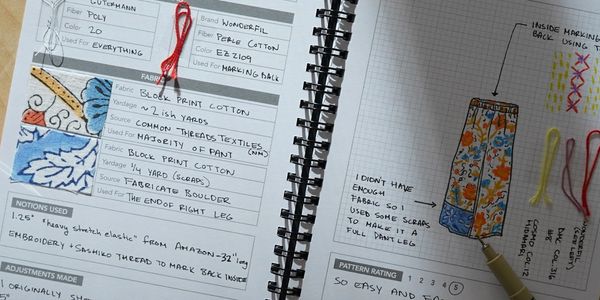 GUTERMANN
Fiber POLY
Color 20
Used For EVERYTHING
Brand WONDERFIL
Fiber PERLE COTTON
Color EZ2109
Used For MARKING BACK
FABRIC
Fabric BLOCK PRINT COTTON
Yardage ~ 2 ish YARDS
Source COMMON THREADS TEXTILES (NM)
Used For MAJORITY OF PANT
Fabric BLOCK PRINT COTTON
Yardage 1/4 YARD (SCRAPS)
Source FABRICATE BOULDER
Used For THE END OF RIGHT LEG
NOTIONS USED
1.25" "heavy stretch elastic" FROM AMAZON - 32" long
EMBROIDERY + SASHIKO THREAD TO MARK BACK INSIDE
ADJUSTMENTS MADE
I ORIGINALLY
INSIDE MARKING
BACK USING
I DIDN'T HAVE
ENOUGH
FABRIC SO I
USED SOME SCRAPS
TO MAKE IT A
FULL PANT LEG
COSMO
HIDAMARI
COL. 12
DMC COL. 316
#8
WONDERFIL
PATTERN RATING 1 2 3 4 5
SO EASY AND